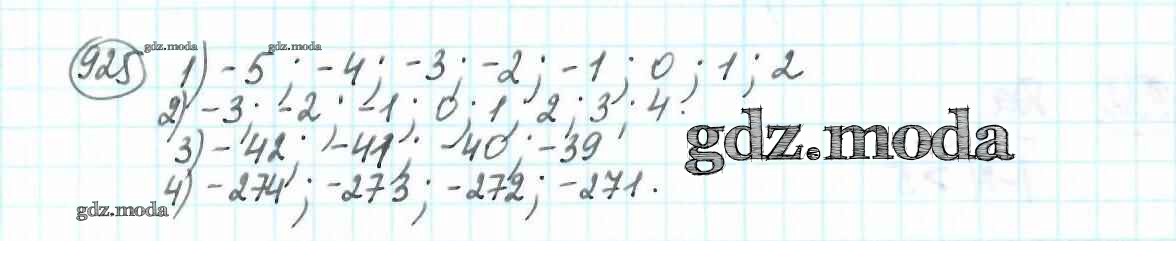 925 gdz.moda gdz.moda
1) -5; -4; -3; -2; -1; 0; 1; 2
2) -3; -2; -1; 0; 1; 2; 3; 4.
3) -42; -41; -40; -39
4) -274; -273; -272; -271.
gdz.moda
gdz.moda